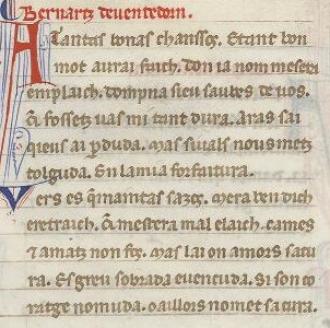 Bernartz deuentedorn.
A Tantas bonas chanssos. Etant bon
mot aurai faich. don ia nom meseri
emplaich. dompna sieu saubes de uos.
Q̃ fossetz uas mi tant dura. Aras sai
queus ai ꝑduda. Mas siuals nous metz
tolguda. En lamia forfaitura.
Uers es q̃ maintas sazos. Mera ben dich
eretraich. Q̃ mestera mal elaich. cames
⁊ amatz non fos. Mas lai on amors satu
ra. Es greu sobrada euencuda. Si son co
ratge nomuda. o aillors nomet sa cura.